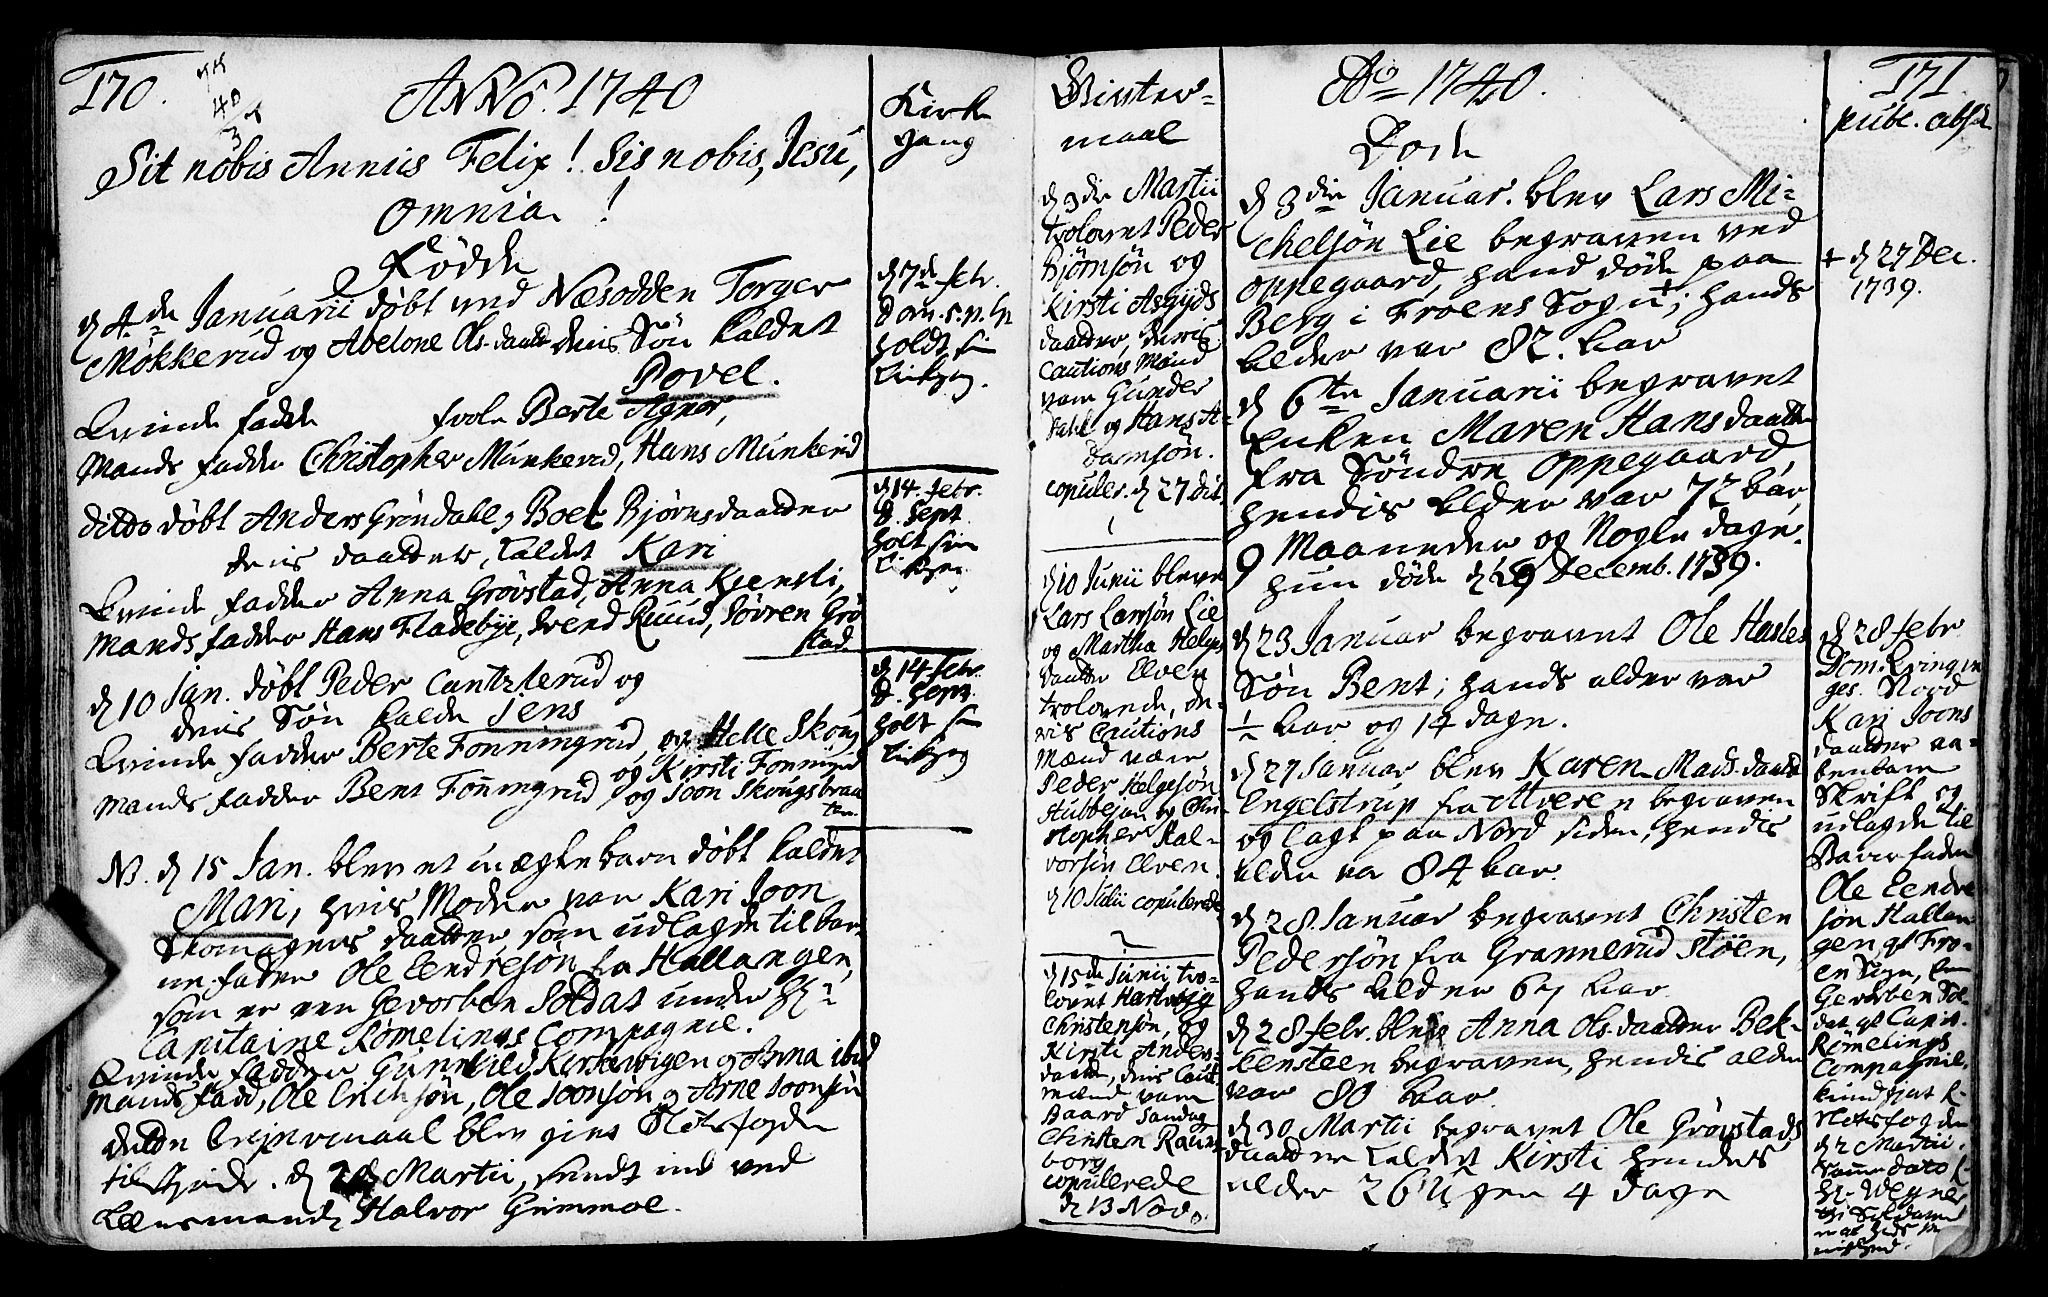 170.
ANNO. 1740
Sit nobis Annus Felix! Sis nobis, Jesu,
Omnia!
Fødde
d 4de Januarii døbt ved Næsodden Torger
Mökkerud og Abelone Ols.daatt deris Søn kaldet
Povel.
Qvinde fadder Berte Agnor,
Mands fadder Christopher Munkerud, Hans Munkerud
ditto døbt Anders Gröndahl, Boel Bjørnsdaatter
deris daatter, kaldet Kari
Qvinde fadder Anna Gröstad, Anna Kjensli,
Mands fadder Hans Fladebye, Svend Ruud, Sövren Grö
stad.
d 10 Jan. döbt Peder Cantzlerud og
deris Søn kalde Jens
Qvinde fadder Berte Fonningrud, og Helle Skoug
og Kirsti Fonningrud
Mands fadder Bent Fonningrud og Joon Skougsbraa
ten
N. d 15 Jan. blev et uægte barn döbt kaldet
Mari, hvis Moder var Kari Joon
Skomagers daatter, som udlagde til bar
ne fader Ole Eendresön fra Hallangen,
som er een Gevorben Soldat under Hr
Capitaine Römelings Compagnie.
Qvinde fadder Gunnild Kirkevigen og Anna ibid
Mands fadd, Ole Erichsön, Ole Joonsön og Arne Joonsön
dette Leyermaal blev givet
til kiende. d Martii, sendt ind ved
Leensmand Halvor Gimmel.
Kirke
gang
d 7de febr.
Dom. 5. p. Ep
holdt sin
kirkgg.
d 14. febr.
D. Sept.
holt sin
kirkgg.
d 14 febr.
D. Sept.
holt sin
kirkgg
maal
d 3die Martii
trolovet Peder
Bjørnsön og
Kirsti Asgijds
daatter, deris
Cautions Mænd
vare Gunder
og Hans A-
damsön.
copuler. d 27 Dit.
d 10 Junii bleve
Lars Larsön Lie
og Martha Helges
daatter Elven
trolovede, de-
ris Cautions
Mænd vare
Peder Helgesön
Hubbejan og Chri
stopher Hal-
vorsön Elven.
d 10 Julii copulerede
d 15de Junii tro-
lovet Hartvijg
Christensön, og
Kirsti Anders-
daatter, deris Caut.
mænd vare
Baard Sandag
Christen Raun
borg
copulerede
d 13 Nov.
Ao 1740.
Døde
d 3die Januar. blev Lars Mi-
chelsön Lie begraven ved
Oppegaard, hand døde paa
Berg i Froens Sogn +; hands
alder var 82. aar
d 6te Januarii begravet
Enken Maren Hansdaatter
fra Söndre Oppegaard
hendis alder var 72 aar,
9 Maaneder og Nogle dage.
hun døde d 29 Decemb. 1739.
d 23 Januar begravet Ole Hasles
Søn Bent; hands alder var
1/2 aar og 14 dage.
d 27 Januar blev Karen Mads.daatter
Engelstrup fra begraven
og lagt paa Nord siden, hendis
alder var 84 aar
d 28 Januar begravet Christen
Pedersön fra Grannerud Støen,
hands alder 67 aar
d 28 febr. blev Anna Ols.daatter Bek-
kensteen begraven, hendis alder
var 80 aar
d 30 Martii begravet Ole Gröstads
daatter kaldet Kirsti hendes
alder 26 Uger 4 dage
171.
publ. abs.
+ d 27 Dec.
1739.
d 28 febr
Dom.
ges. Stood
Kari Joons
daatter aa-
benbare
Skrift og
udlagde til
Barnefader
Ole Eendre
sön Hallan
gen, af Fro-
en Sogn, een
Gevorben Sol-
dat, af Capit.
Römelings
Compagnie,
d 2 Martii.